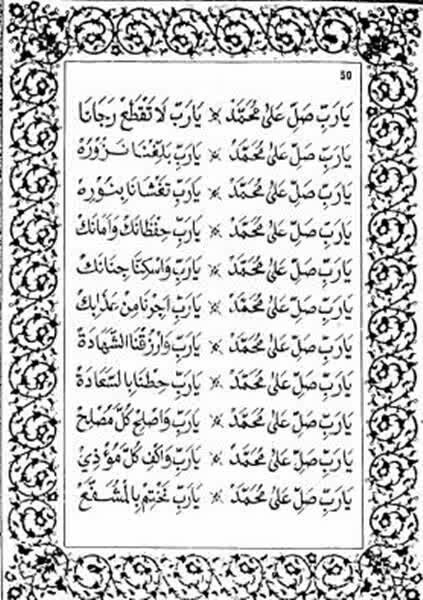 50
يَارَبِّ صَلِّ عَلَىٰ مُحَمَّدْ * يَارَبِّ لَا تَقْطَعْ رَجَانَا
يَارَبِّ صَلِّ عَلَىٰ مُحَمَّدْ * يَارَبِّ بَلِّغْنَا نَزُورُهْ
يَارَبِّ صَلِّ عَلَىٰ مُحَمَّدْ * يَارَبِّ تَغْشَانَا بِنُورِهْ
يَارَبِّ صَلِّ عَلَىٰ مُحَمَّدْ * يَارَبِّ حِفْظَانَكْ وَاَمَانَكْ
يَارَبِّ صَلِّ عَلَىٰ مُحَمَّدْ * يَارَبِّ وَاسْكِنَّا جِنَانَكْ
يَارَبِّ صَلِّ عَلَىٰ مُحَمَّدْ * يَارَبِّ اَجِرْنَا مِنْ عَذَابِكْ
يَارَبِّ صَلِّ عَلَىٰ مُحَمَّدْ * يَارَبِّ وَارْزُقْنَا الشَّهَادَةْ
يَارَبِّ صَلِّ عَلَىٰ مُحَمَّدْ * يَارَبِّ حِطْنَا بِالسَّعَادَةْ
يَارَبِّ صَلِّ عَلَىٰ مُحَمَّدْ * يَارَبِّ وَاصْلِحْ كُلَّ مُصْلِحْ
يَارَبِّ صَلِّ عَلَىٰ مُحَمَّدْ * يَارَبِّ وَاكْفِ كُلَّ مُؤْذِيْ
يَارَبِّ صَلِّ عَلَىٰ مُحَمَّدْ * يَارَبِّ نَخْتِمْ بِالْمُشَفَّعْ